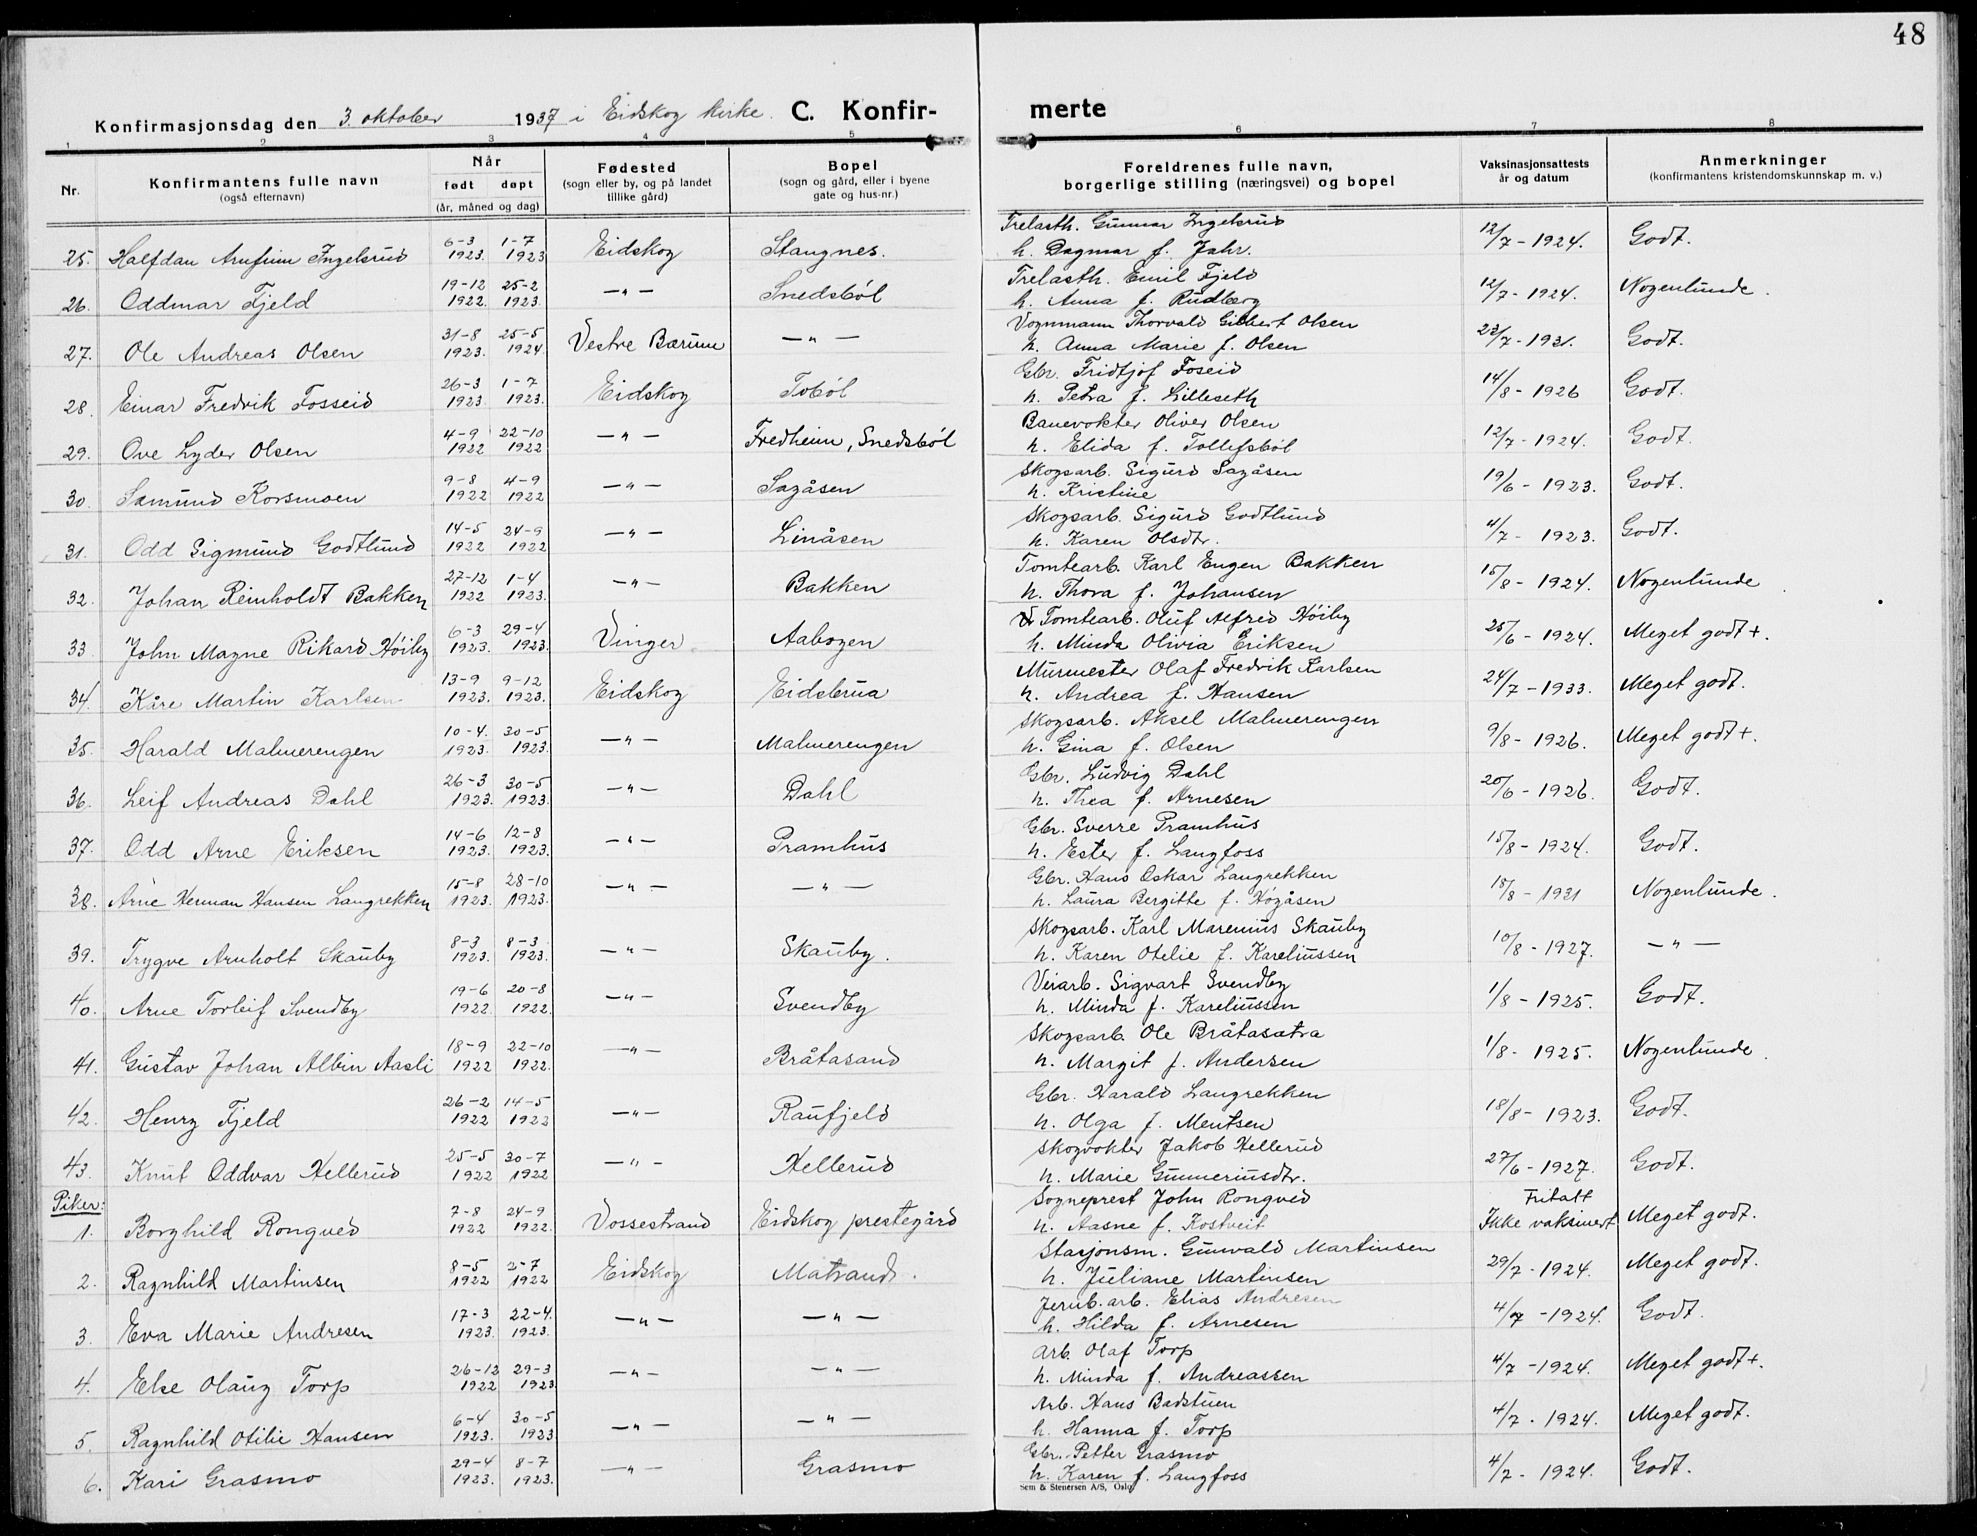 48
Konfirmasjonsdag den 3. oktober 1937 i Eidskog kirke. C. Konfir-
merte
1 2 3 4 5 6 7 8
Nr. Konfirmantens fulle navn (også efternavn) Når født døpt (år, måned og dag) Fødested (sogn eller by, og på landet tillike gård) Bopel (sogn og gård, eller i byene gate og hus-nr.) Foreldrenes fulle navn, borgerlige stilling (næringsvei) og bopel Vaksinasjonsattests år og datum Anmerkninger (konfirmantens kristendomskunnskap m. v.)
25. Halfdan Arnfinn Ingelsrud 6-3 1923. 1-7 1923 Eidskog Stangnes. Trelasth. Gunnar Ingelsrud h. Dagmar f. Jahr. 12/7 - 1924. Godt.
26. Oddmar Fjeld 19-12 1922. 25-2 1923. —"— Snedsböl Trelasth. Emil Fjeld h. Anna f. Rudberg 12/7 - 1924. Nogenlunde.
27. Ole Andreas Olsen 31-8 1923. 25-5 1924. Vestre Bærum —"— Vognmann Thorvald Gilbert Olsen h. Anna Marie f. Olsen 23/7 - 1931. Godt.
28. Einar Fredrik Fosseid 26-3 1923 1-7 1923. Eidskog Toböl Gbr. Fridtjof Foseid h. Petra f. Lilleseth 14/8 - 1926 Godt.
29. Ove Lyder Olsen 4-9 1922 22-10 1922 —"— Fredheim, Snedsböl Banevokter Oliver Olsen h. Elida f. Tollefsböl 12/7 - 1924. Godt.
30. Samund Korsmoen 9-8 1922 4-9 1922 —"— Sagåsen Skogsarb. Sigurd Sagåsen h. Kristine 19/6 - 1923. Godt.
31. Odd Sigmund Godtlund 14-5 1922 24-9 1922 —"— Linåsen Skogsarb. Sigurd Godtlund h. Karen Olsdtr. 4/7 - 1923. Godt.
32. Johan Reinholdt Bakken 27-12 1922 1-4 1923. —"— Bakken Tomtearb. Karl Eugen Bakken h. Thora f. Johansen 15/8 - 1924. Nogenlunde
33. John Magne Rikard Höiby 6-3 1923. 29-4 1923. Vinger. Aabogen Tomtearb. Oluf Alfred Höiby h. Minda Olivia Eriksen 25/6 - 1924. Meget godt +.
34. Kåre Martin Karlsen 13-9 1923. 9-12 1923. Eidskog Eidsbrua Murmester Olaf Fredrik Karlsen h. Andrea f. Hansen 24/7 - 1933. Meget godt.
35. Harald Malmerengen 10-4. 1923. 30-5 1923. —"— Malmerengen Skogsarb. Aksel Malmerengen h. Gina f. Olsen 9/8 - 1926. Meget godt +.
36. Leif Andreas Dahl 26-3 1923. 30-5 1923. —"— Dahl Gbr. Ludvig Dahl h. Thea f. Arnesen 20/6 - 1926. Godt.
37. Odd Arne Eriksen 14-6 1923. 12-8 1923. —"— Pramhus Gbr. Sverre Pramhus h. Ester f. Langfoss 15/8 - 1924. Godt.
38. Arne Herman Hansen Langrekken 15-8 1923. 28-10 1923. —"— —"— Gbr. Hans Oskar Langrekken h. Laura Bergitte f. Högåsen 18/8 - 1931 Nogenlunde.
39. Trygve Arnholt Skauby 8-3 1923. 8-3 1923. —"— Skauby. Skogsarb. Karl Marenius Skauby h. Karen Otelie f. Kareliussen 10/8 - 1927. —"—
40. Arne Torleif Svendby 19-6 1922. 20-8 1922. —"— Svendby Veiarb. Sigvart Svendby h. Minda f. Kareliussen 1/8 - 1925. Godt.
41. Gustav Johan Albin Aasli 18-9 1922 22-10 1922. —"— Bråtasand Skogsarb. Ole Bråtasatra h. Margit f. Andersen 1/8 - 1925. Nogenlunde.
42. Henry Fjeld 26-2 1922 14-5 1922 —"— Raufjeld Gbr. Harald Langrekken h. Olga f. Mentsen 18/8 - 1923. Godt.
43. Knut Oddvar Hellerud 25-5 1922 30-7 1922 —"— Hellerud Skogvokter Jakob Hellerud h. Marie Gunneriusdtr. 27/6 - 1927. Godt.
Piker:
1. Borghild Rongved 7-8 1922 24-9 1922. Vossestrand Eidskog prestegård Sogneprest John Rongved h. Aasne f. Kostveit Fritatt Ikke vaksinert Meget godt.
2. Ragnhild Martinsen 8-5 1922 2-7 1922 Eidskog Matrand. Stasjonsm. Gunvald Martinsen h. Juliane Martinsen 29/7 - 1924. Meget godt.
3. Eva Marie Andresen 17-3 1923. 22-4. 1923. —"— —"— Jernb.arb. Elias Andresen h. Hilda f. Arnesen 4/7 - 1924. Godt.
4. Else Olaug Torp 26-12 1922 29-3 1923. —"— —"— Arb. Olaf Torp h. Minda f. Andreassen 4/7 - 1924. Meget godt +.
5. Ragnhild Otilie Hansen 6-4 1923. 30-5 1923 —"— —"— Arb. Hans Badstuen h. Hanna f. Torp 4/7 - 1924. Meget godt.
6. Kari Grasmo 29-4 1923. 8-7 1923. —"— Grasmo Gbr. Petter Grasmo h. Karen f. Langfoss 4/7 - 1924. Godt.
Sem & Stenersen A/S, Oslo